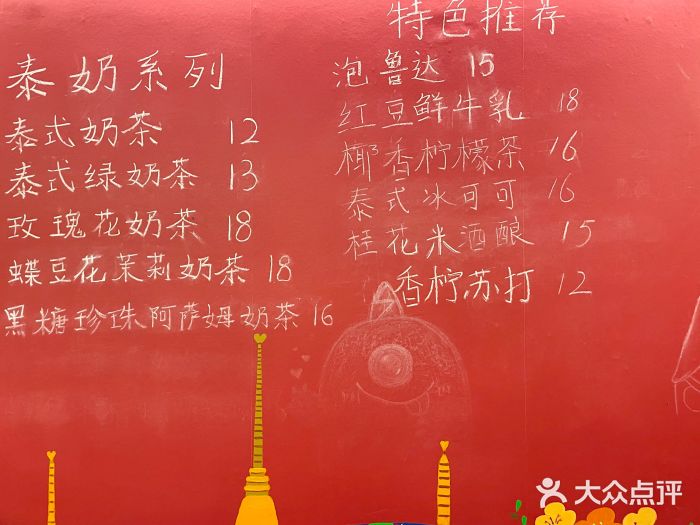 泰奶系列
泰式奶茶 12
泰式绿奶茶 13
玫瑰花奶茶 18
蝶豆花茉莉奶茶 18
黑糖珍珠阿萨姆奶茶 16
特色推荐
泡鲁达 15
红豆鲜牛乳 18
椰香柠檬茶 16
泰式冰可可 16
桂花米酒酿 15
香柠苏打 12
大众点评